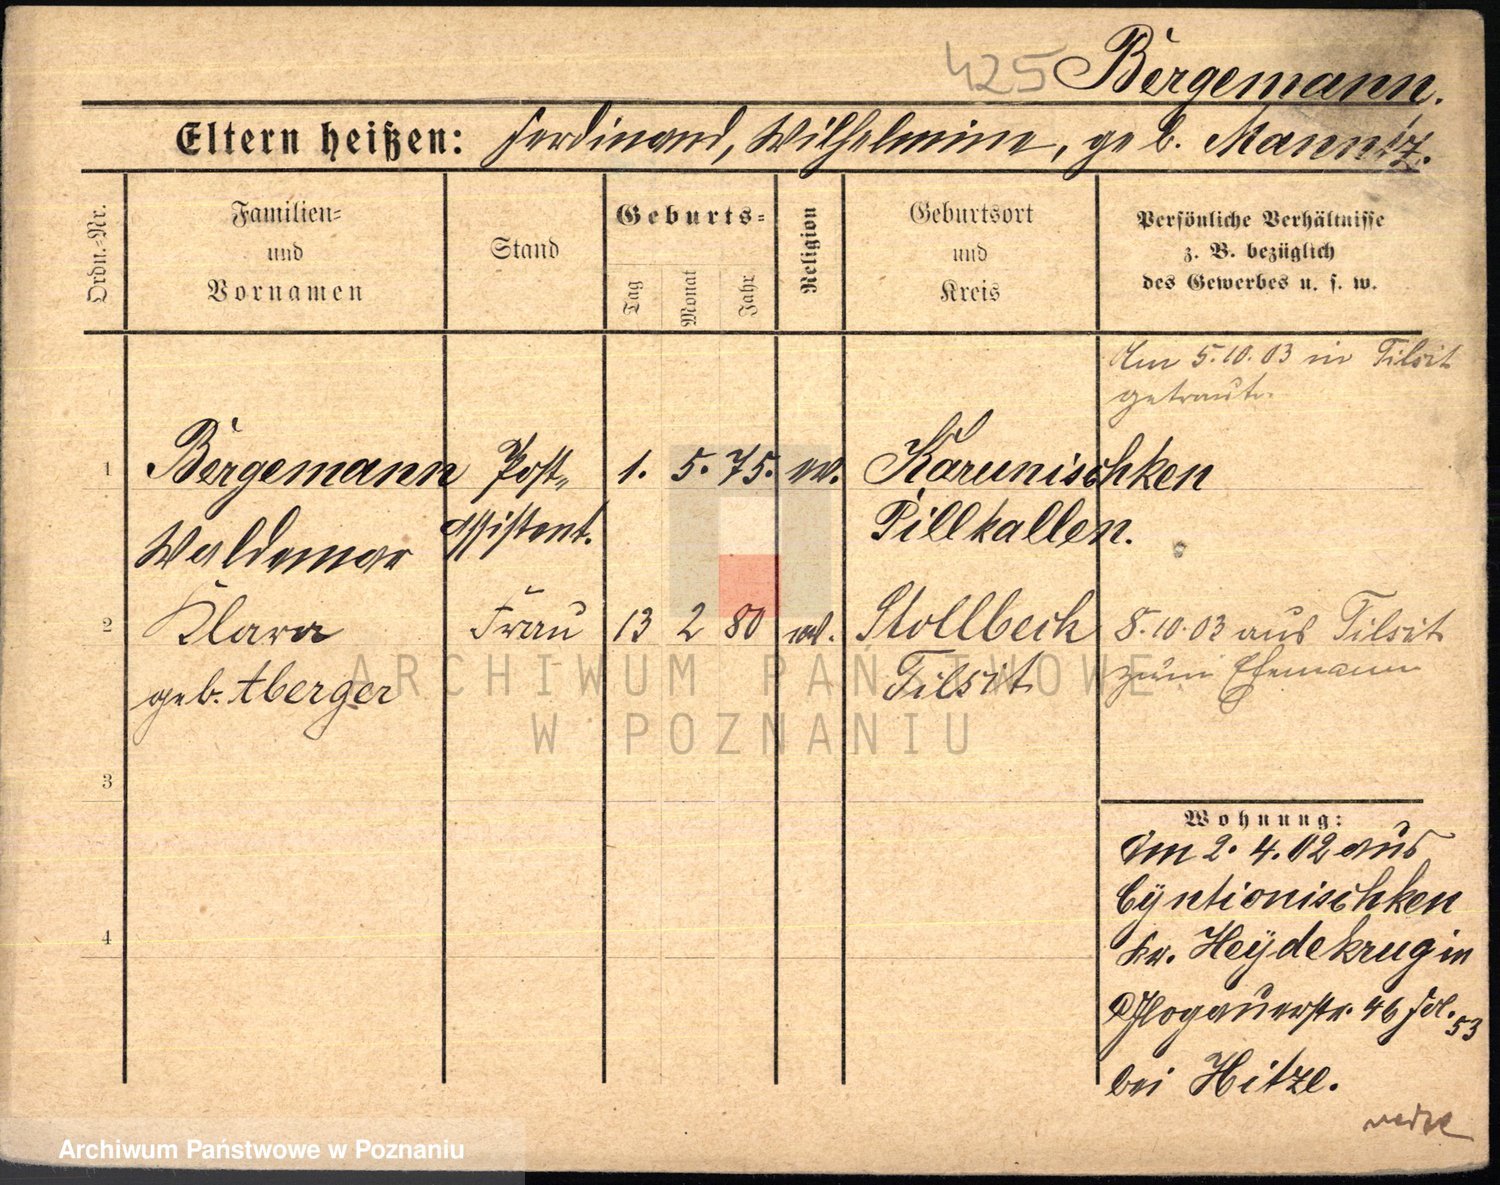 425 Bergemann.
Eltern heißen: Ferdinand, Wilhelmine, geb. Mannitz.
Ordn.-Nr.
Familien-
und
Vornamen
Stand
Geburts-
Tag
Monat
Jahr
Religion
Geburtsort
und
Kreis
Persönliche Verhältnisse
z. B. bezüglich
des Gewerbes u. s. w.
Am 5.10.03 in Tilsit
getraut.
1 Bergemann Post- 1. 5. 75. ev. Karunischken
Waldemar Assistent. Pillkallen.
2 Klara Frau 13 2 80 ev. Stollbeck 8.10.03 aus Tilsit
geb. Aberger Tilsit zum Ehemann
3
4
Wohnung:
Am 2. 4. 02 aus
Cyntionischken
kr. Heydekrug in
Glogauerstr. 46 Fol. 53
bei Hitze.
ARCHIWUM PAŃSTWOWE
W POZNANIU
Archiwum Państwowe w Poznaniu